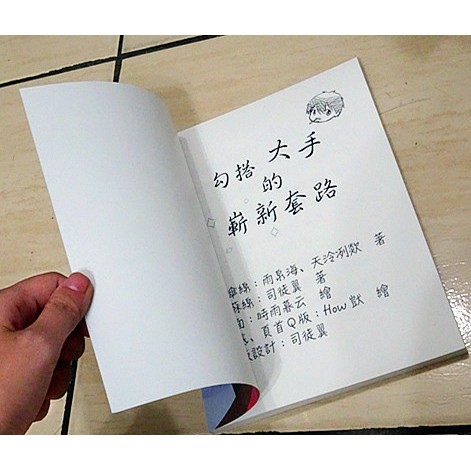 勾搭 大手
的
嶄新套路
線：雨帛海、天泠洌歘 著
線：司徒翼 著
：時雨暮云 繪
、頁首Q版：How獃 繪
設計：司徒翼